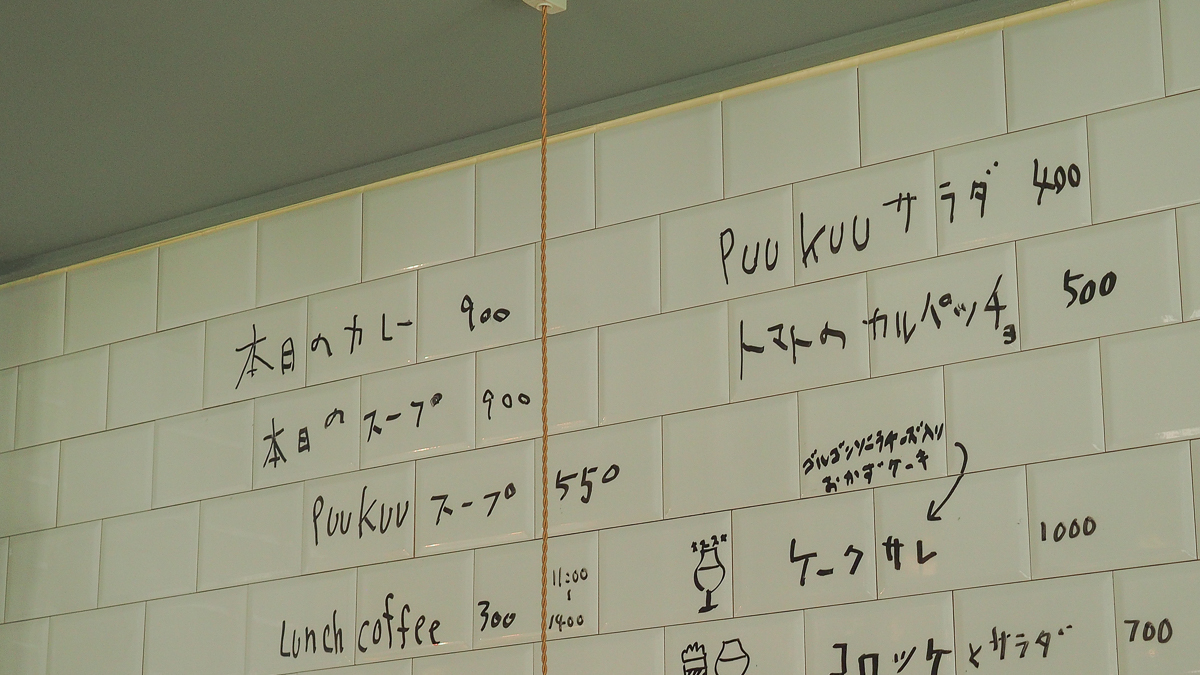 本日のカレー 900
本日のスープ 900
PUUKUU スープ 550
Lunch coffee 300 11:00 〜 14:00
PUUKUU サラダ 400
トマトのカルパッチョ 500
ゴルゴンゾーラチーズ入り
おかずケーキ
ケークサレ 1000
コロッケとサラダ 700